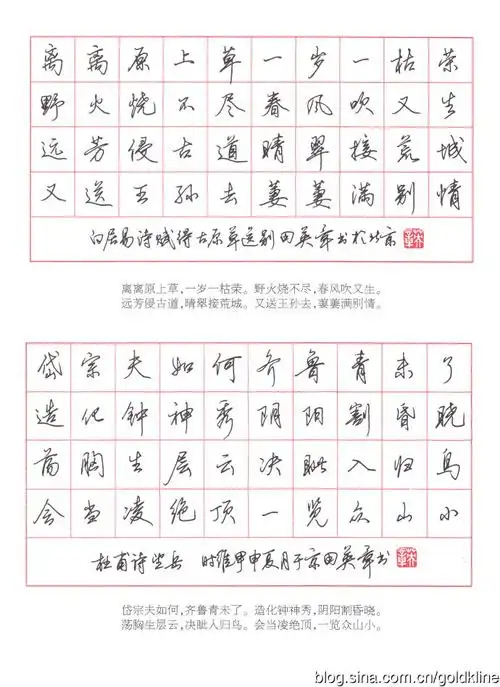 离离原上草一岁一枯荣
野火烧不尽春风吹又生
远芳侵古道晴翠接荒城
又送王孙去萋萋满别情
白居易诗赋得古原草送别田英章书于北京
离离原上草,一岁一枯荣。野火烧不尽,春风吹又生。
远芳侵古道,晴翠接荒城。又送王孙去,萋萋满别情。
岱宗夫如何齐鲁青未了
造化钟神秀阴阳割昏晓
荡胸生层云决眦入归鸟
会当凌绝顶一览众山小
杜甫诗望岳 时维甲申夏月于京田英章书
岱宗夫如何,齐鲁青未了。造化钟神秀,阴阳割昏晓。
荡胸生层云,决眦入归鸟。会当凌绝顶,一览众山小。
blog.sina.com.cn/goldkline